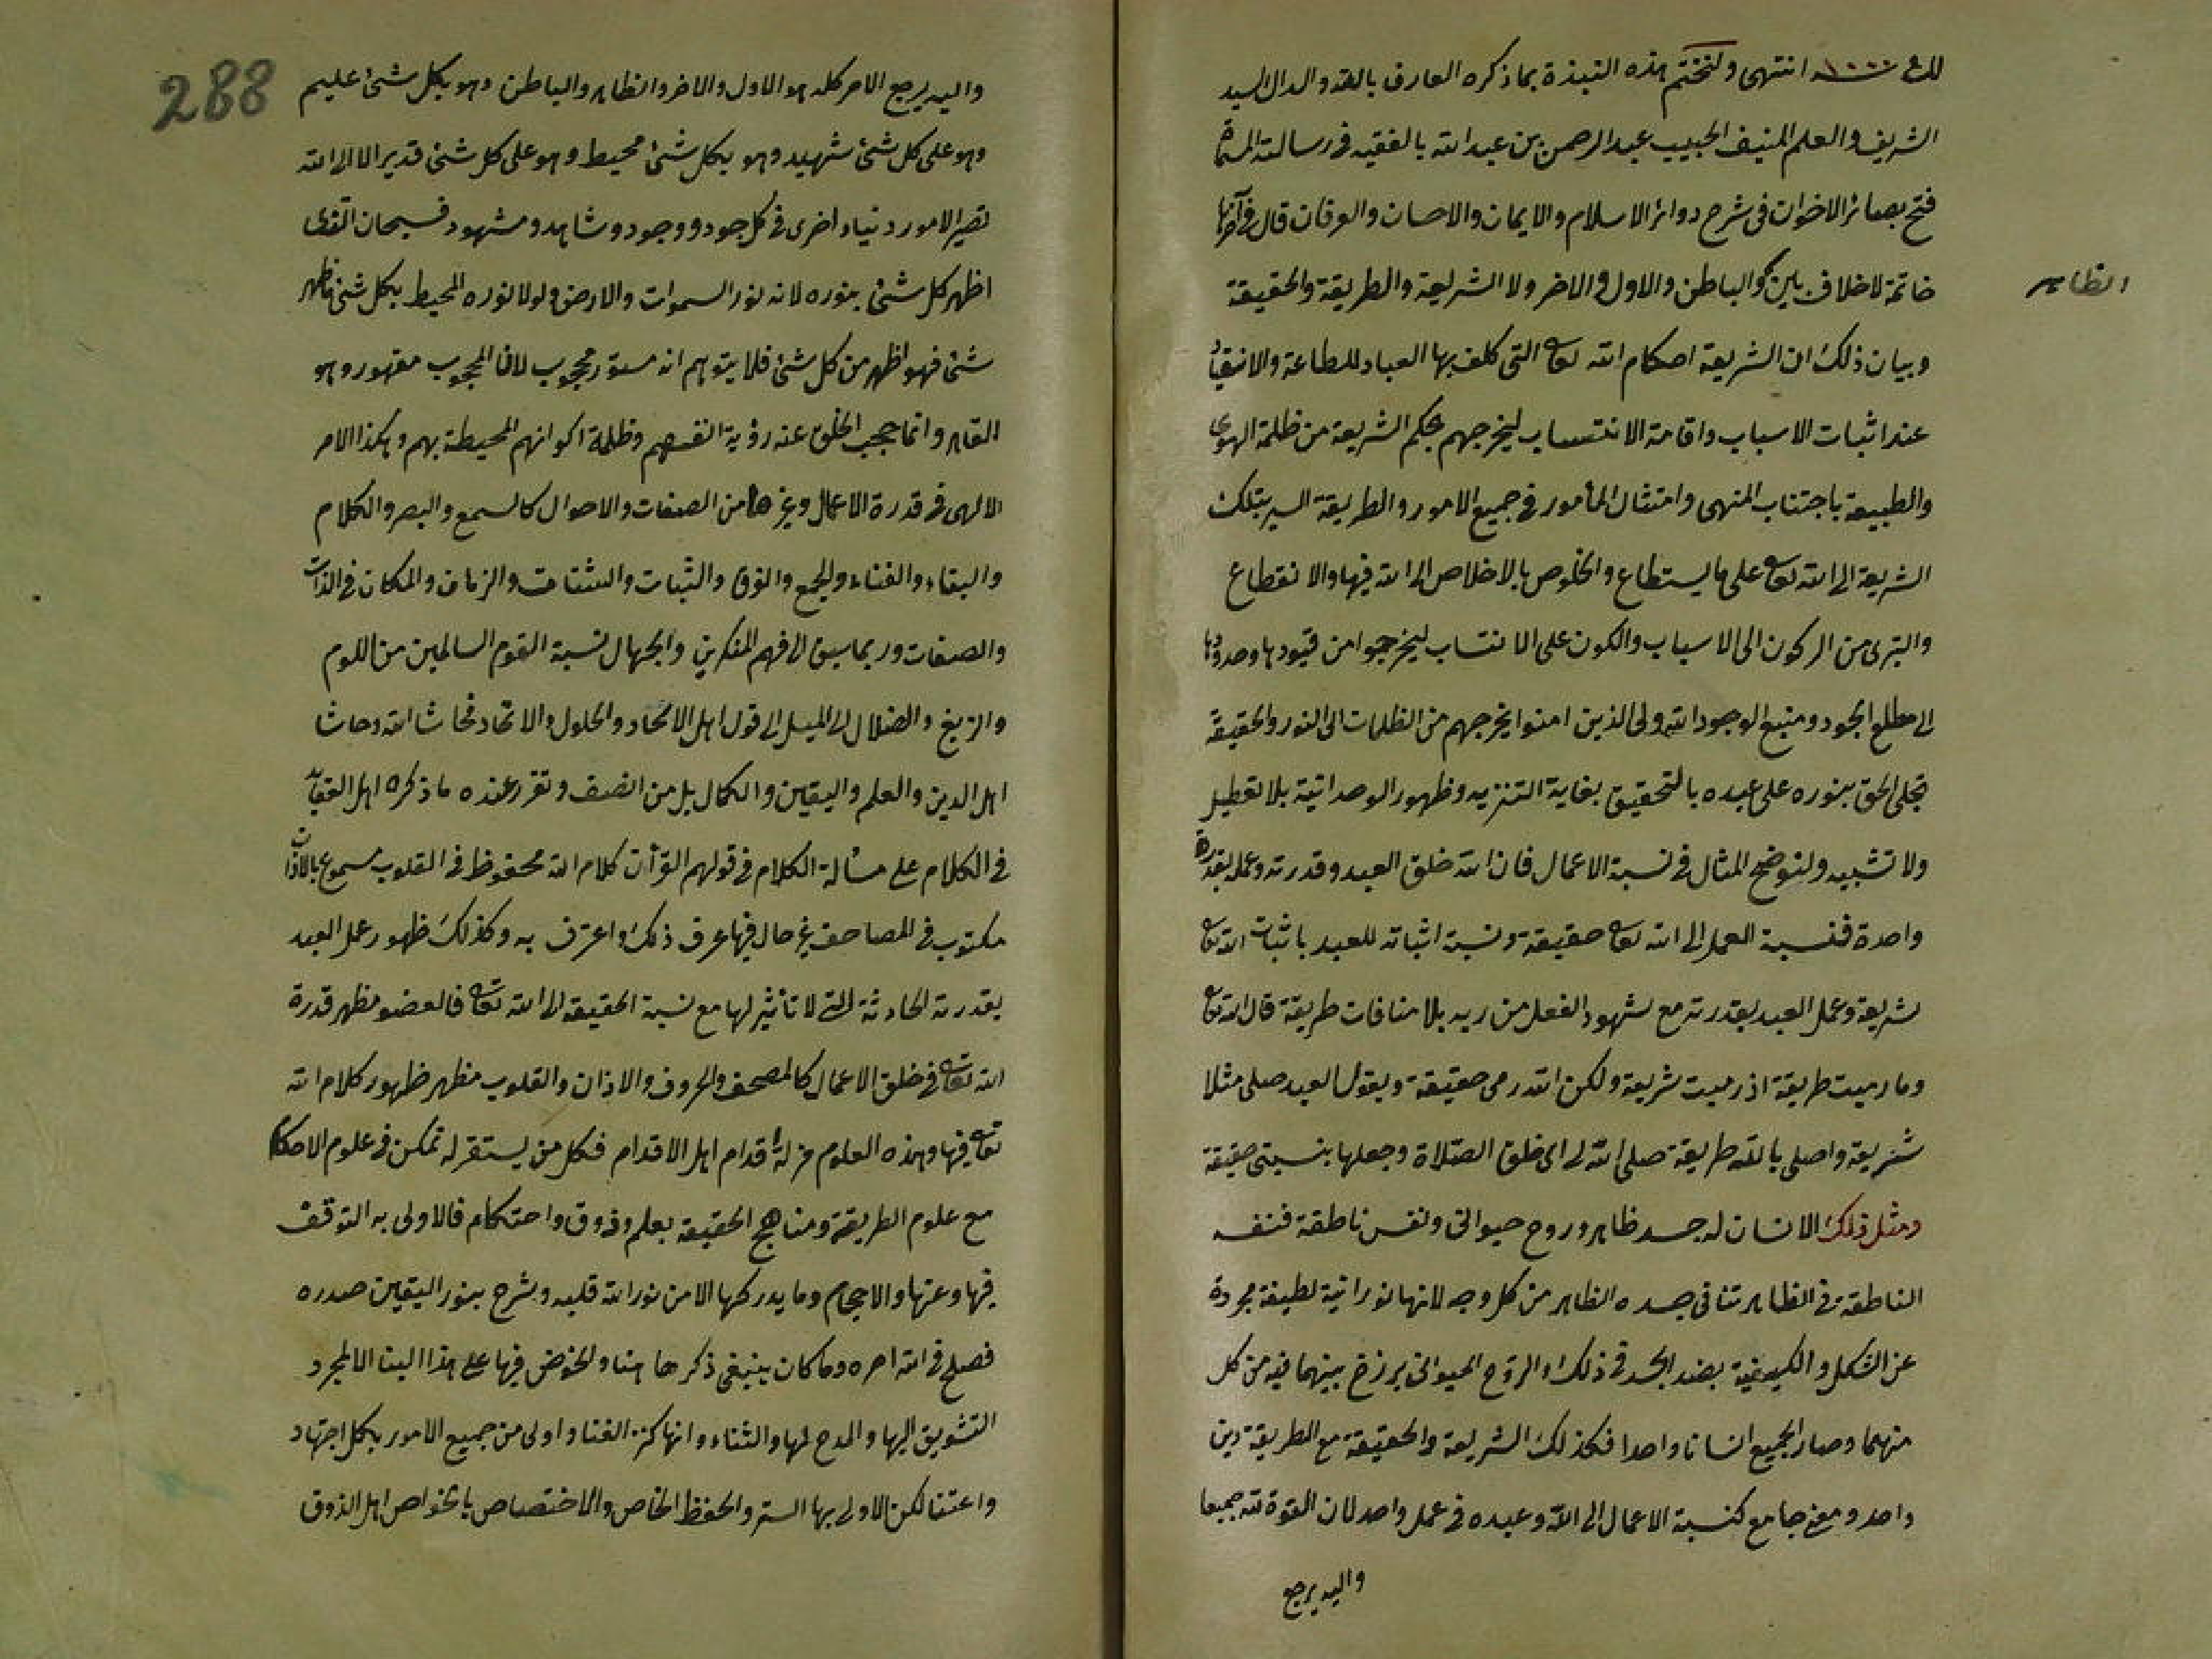 للث ١٠٠٠ سنه انتهى ولنختتم هذه النبذة بما ذكره العارف بالله والدال السيد
الشريف والعلم المنيف الحبيب عبد الرحمن بن عبد الله بالفقيه في رسالته المسماة
فتح بصائر الاخوان في شرح دوائر الاسلام والايمان والاحسان والعرفان قال في آخرها
خاتمة لاخلاف بين والباطن والاول والاخر ولا الشريعة والطريقة والحقيقة
الظاهر
وبيان ذلك ان الشريعة احكام الله تعالى التي كلف بها العباد للطاعة والانقياد
عند اثبات الاسباب واقامة الانتساب ليخرجهم بحكم الشريعة من ظلمة الهوى
والطبيعة باجتناب المنهى وامتثال المأمور في جميع الامور والطريقة السير بتلك
الشريعة الى الله تعالى على ما يستطاع والخلوص بالاخلاص الى الله فيها والانقطاع
والتبرى من الركون الى الاسباب والكون على الانتساب ليخرجوا من قيودها وحدودها
الى مطلع الجود ومنبع الوجود الله ولى الذين امنوا يخرجهم من الظلمات الى النور والحقيقة
تجلى الحق بنوره على عبده بالتحقيق بغاية التنزيه وظهور الوحدانية بلا تعطيل
ولا تشبيه ولنوضح المثال في نسبة الاعمال فان الله خلق العبد وقدرته وعمله بقدرة
واحدة فنسبة العمل الى الله تعالى حقيقة ونسبة اثباته للعبد باثبات الله تعالى
شريعة وعمل العبد بقدرته مع شهود الفعل من ربه بلا منافات طريقة قال الله تعالى
وما رميت طريقة اذ رميت شريعة ولكن الله رمى حقيقة ويقول العبد صلى مثلا
شريعة واصلى بالله طريقة صلى الله لى اى خلق الصلاة وجعلها بنسبتى حقيقة
ومثل ذلك الانسان له جسد ظاهر وروح حيوانى ونفس ناطقة فنفسه
الناطقة في الظاهر تنافى جسده الظاهر من كل وجه لانها نورانية لطيفة مجردة
عن الشكل والكيفية بضد الجسد في ذلك والروح الحيوانى برزخ بينهما فيه من كل
منهما وصار الجميع انسانا واحدا فكذلك الشريعة والحقيقة مع الطريقة دين
واحد ومعنى جامع كنسبة الاعمال الى الله وعبده في عمل واحد لان القوة لله جميعا
واليه يرجع
288
واليه يرجع الامر كله هو الاول والاخر والظاهر والباطن وهو بكل شئ عليم
وهو على كل شئ شهيد وهو بكل شئ محيط وهو على كل شئ قدير الا الى الله
تصير الامور دنيا واخرى في كل جود ووجود وشاهد ومشهود فسبحان الذى
اظهر كل شئ بنوره لانه نور السموات والارض ولولا نوره المحيط بكل شئ ما ظهر
شئ فهو اظهر من كل شئ فلا يتوهم انه مستور محجوب لان المحجوب مقهور وهو
القاهر وانما حجب الخلق عنه رؤية انفسهم وظلمة اكوانهم المحيطة بهم وهكذا الامر
الالهى في قدرة الاعمال وغيرها من الصفات والاحوال كالسمع والبصر والكلام
والبقاء والفناء والجمع والفرق والثبات والشتات والزمان والمكان في الذات
والصفات وربما سبق الى فهم المنكرين والجهال نسبة القوم السالمين من اللوم
والزيغ والضلال الى الميل الى قول اهل الالحاد والحلول والاتحاد فحاشا الله وحاشا
اهل الدين والعلم واليقين والكمال بل من انصف وتقرر عنده ما ذكره اهل العقايد
في الكلام على مسألة الكلام في قولهم القرأن كلام الله محفوظ في القلوب مسموع بالاذان
مكتوب في المصاحف غير حال فيها عرف ذلك واعترف به وكذلك ظهور عمل العبد
بقدرته الحادثة التى لا تأثير لها مع نسبة الحقيقة الى الله تعالى فالعضو مظهر قدرة
الله تعالى في خلق الاعمال كالمصحف والحروف والاذان والقلوب مظهر ظهور كلام الله
تعالى فيها وهذه العلوم مزلة اقدام اهل الاقدام فكل من يستقر له تمكن في علوم الاحكام
مع علوم الطريقة ومناهج الحقيقة بعلم وذوق واحتكام فالاولى به التوقف
فيها وعنها والاحجام وما يدركها الا من نور الله قلبه وشرح بنور اليقين صدره
فصلح في الله امره وما كان ينبغى ذكرها هنا والخوض فيها على هذا البنا الا لمجرد
التشويق اليها والمدح لها والثناء وانها كنز الغنا واولى من جميع الامور بكل اجتهاد
واعتنا لكن الاولى بها الستر والحفظ الخاص والاختصاص بالخواص اهل الذوق